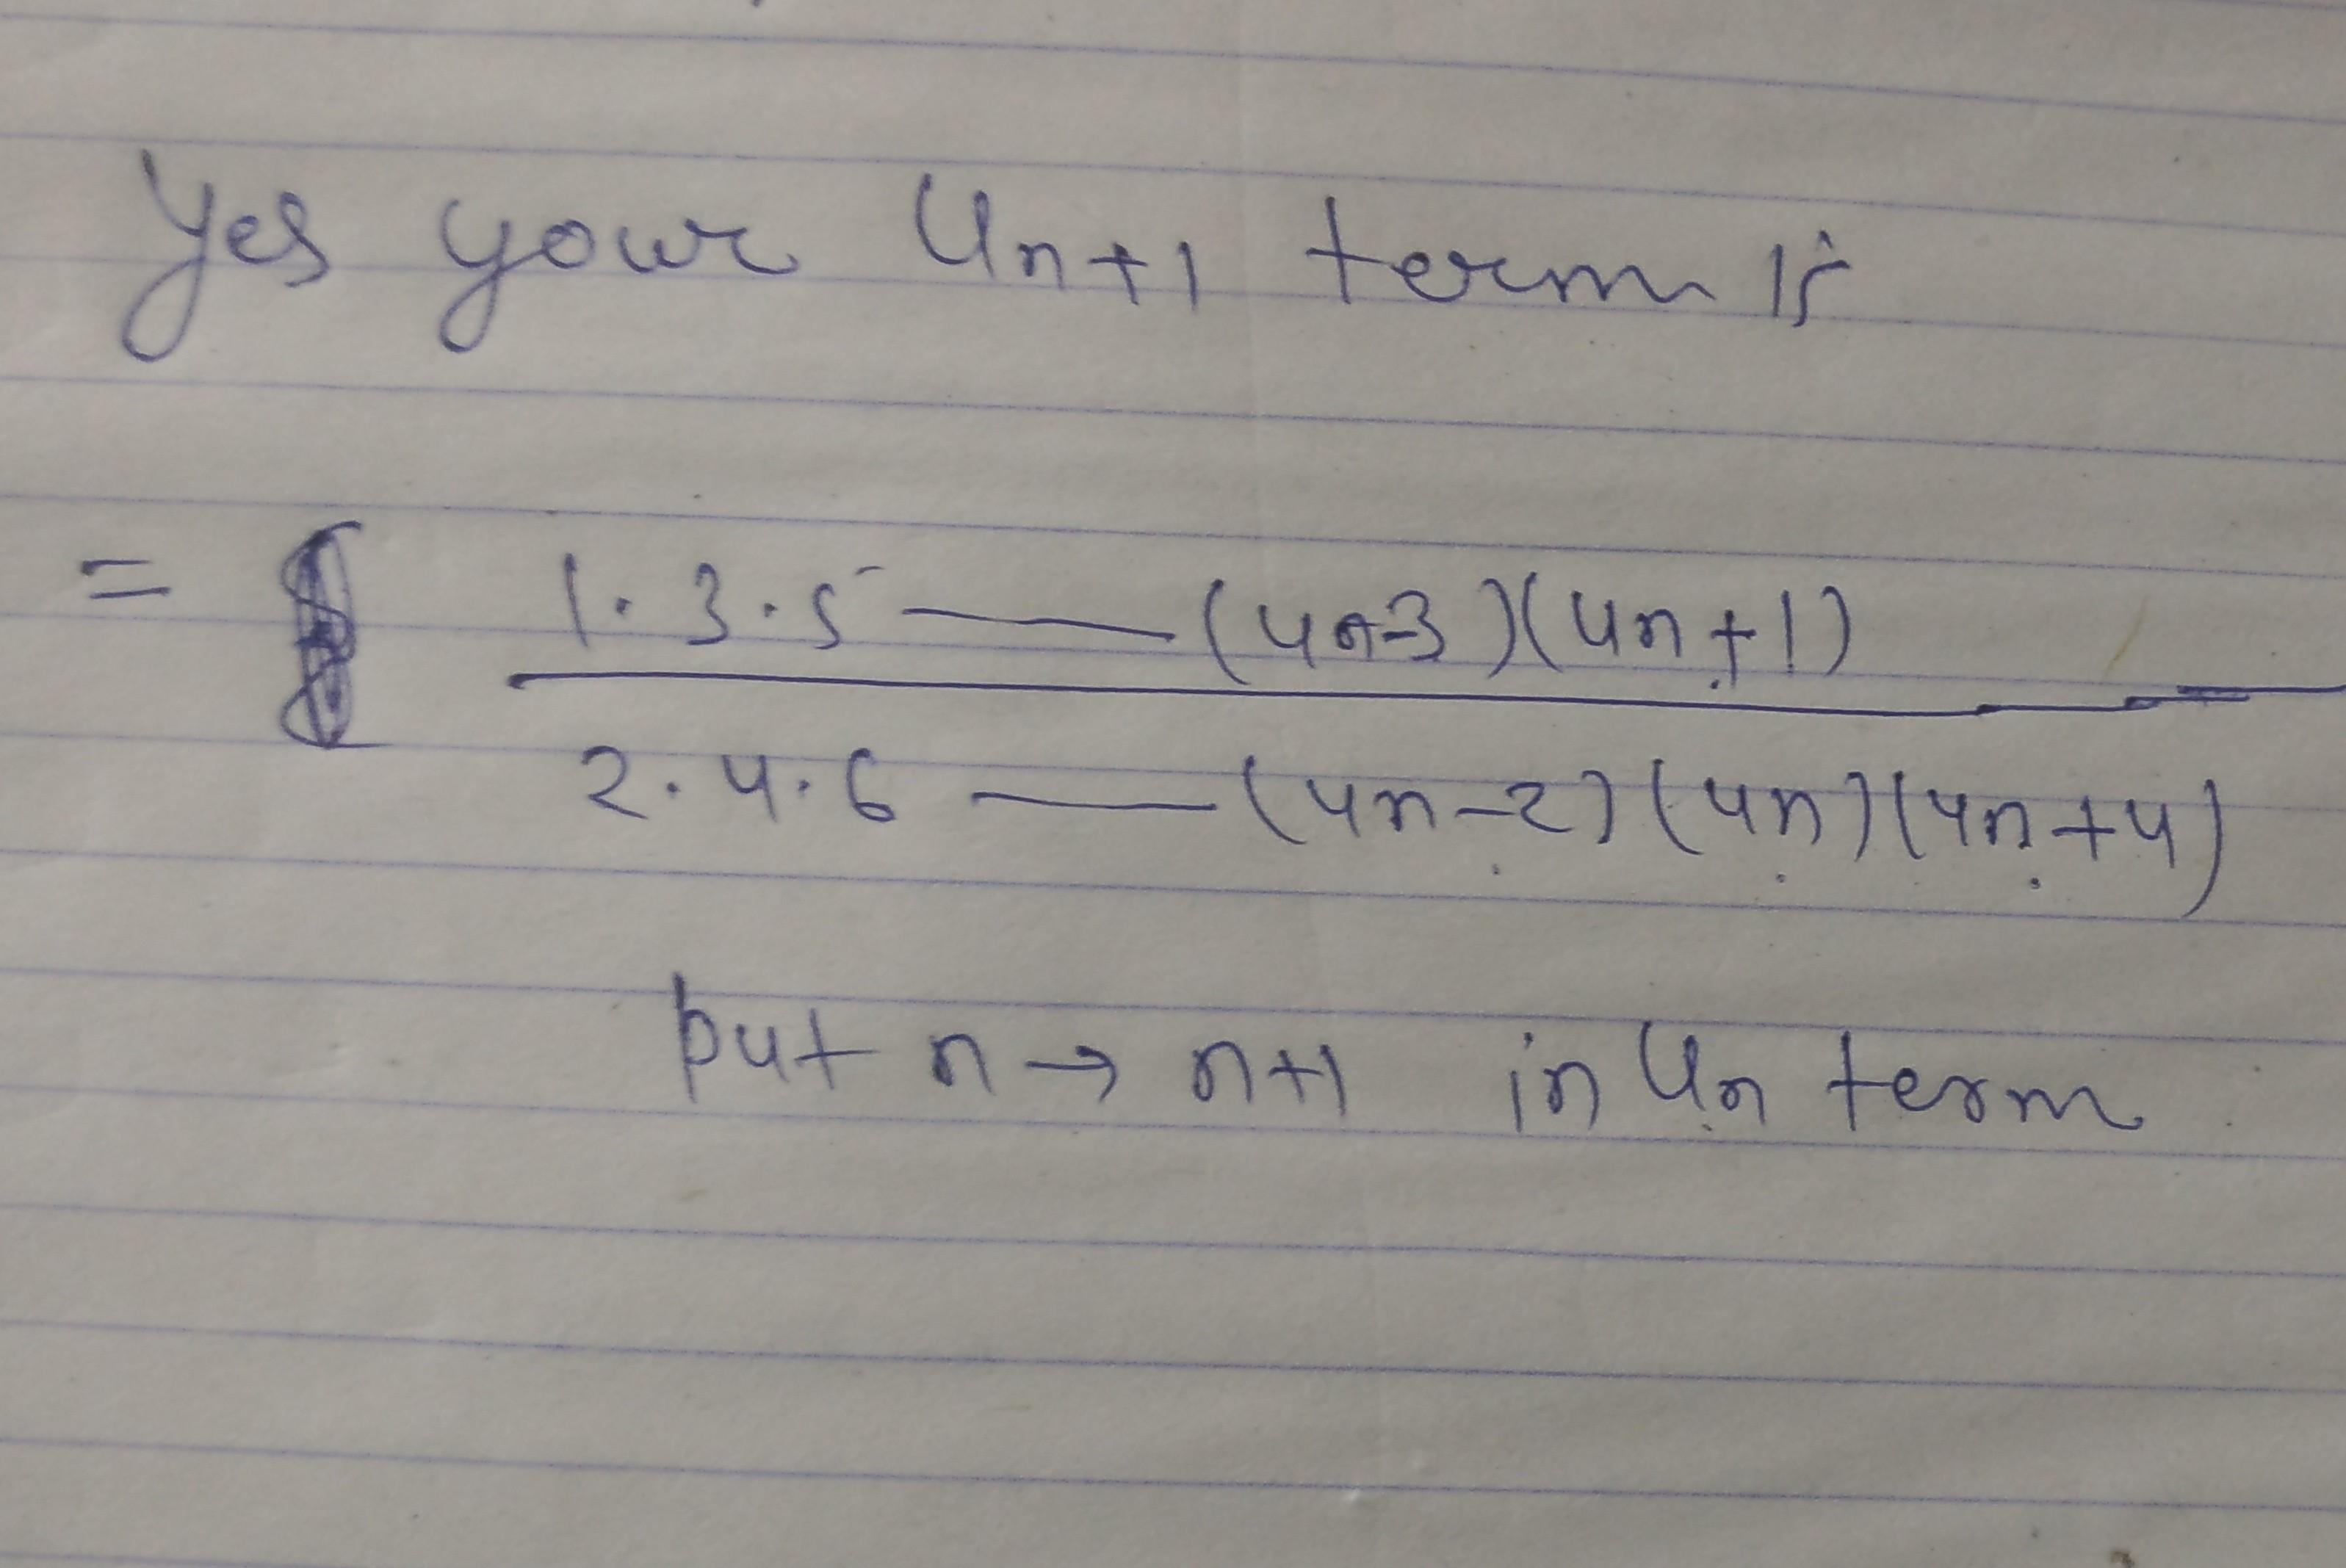 Yes your Un+1 term is
= 1.3.5 —— (4n-3)(4n+1)
2.4.6 —— (4n-2)(4n)(4n+4)
put n → n+1 in Un term